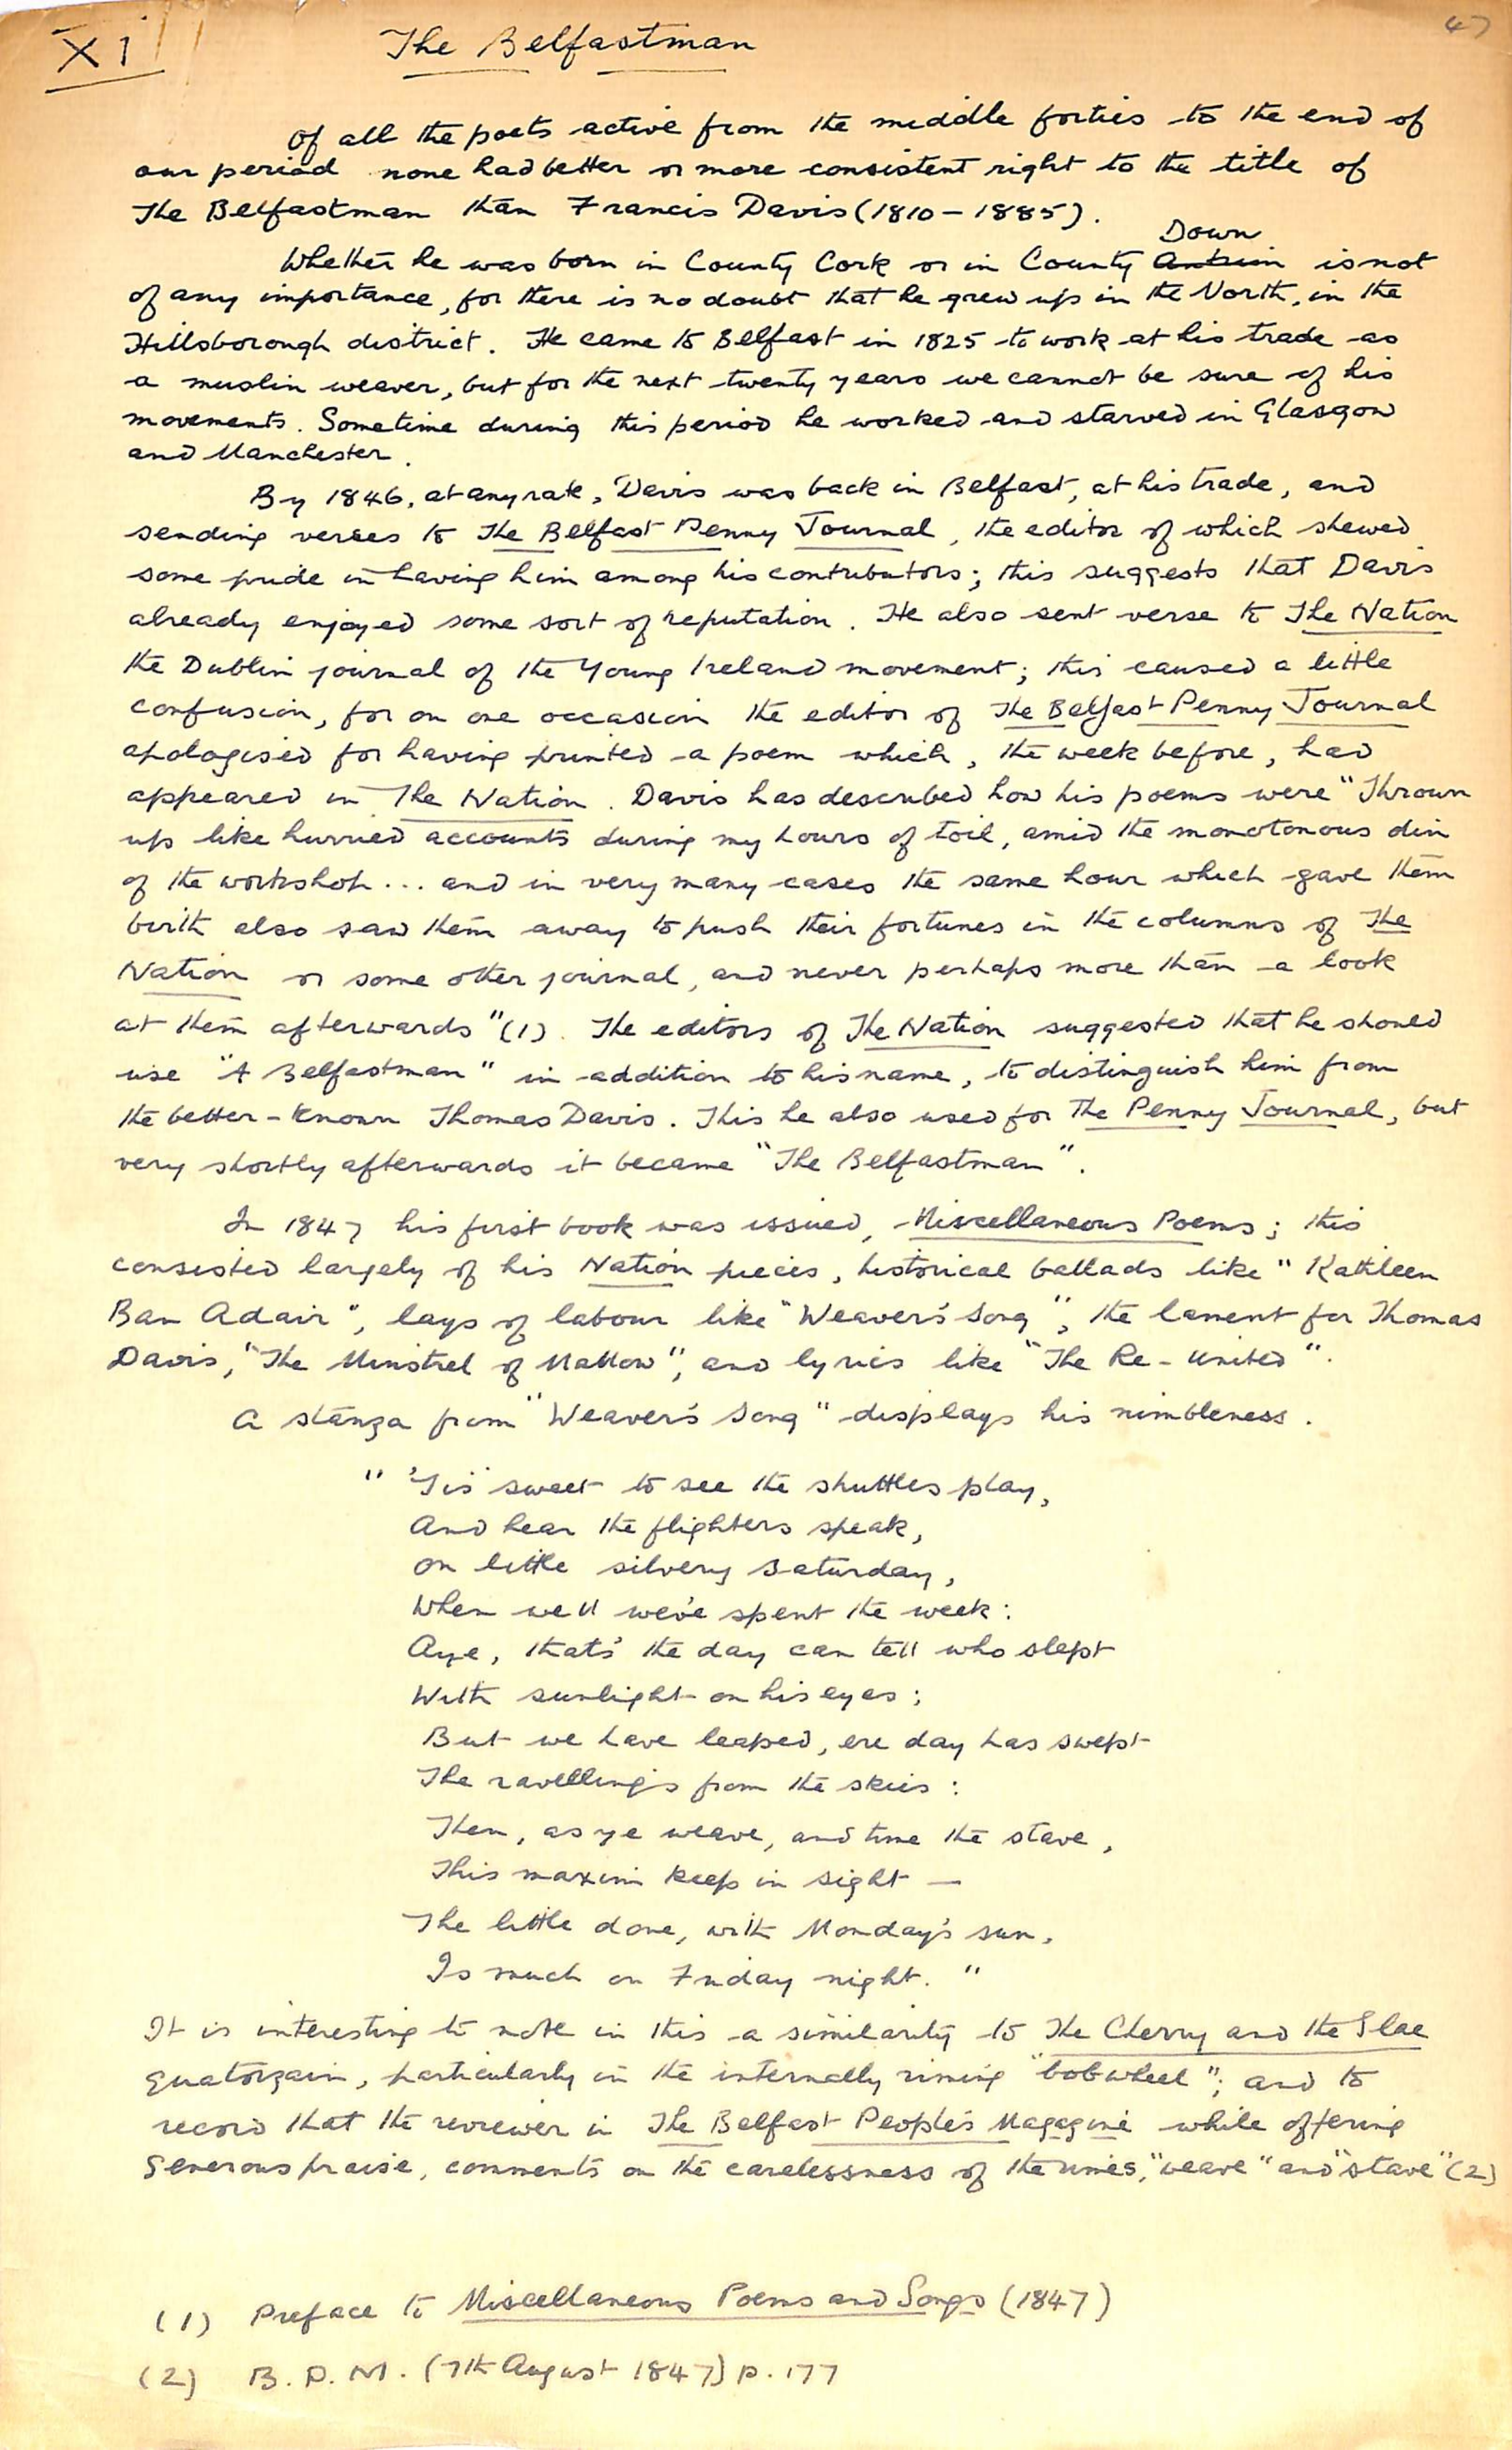 47
XI
The Belfastman
Of all the poets active from the middle forties to the end of
our period none had better or more consistent right to the title of
The Belfastman than Francis Davis (1810 - 1885).
Down
Whether he was born in County Cork or in County Antrim is not
of any importance, for there is no doubt that he grew up in the North, in the
Hillsborough district. He came to Belfast in 1825 to work at his trade as
a muslin weaver, but for the next twenty years we cannot be sure of his
movements. Sometime during this period he worked and starved in Glasgow
and Manchester.
By 1846, at any rate, Davis was back in Belfast, at his trade, and
sending verses to The Belfast Penny Journal, the editor of which shewed
some pride in having him among his contributors; this suggests that Davis
already enjoyed some sort of reputation. He also sent verse to The Nation
the Dublin journal of the Young Ireland movement; this caused a little
confusion, for on one occasion the editor of The Belfast Penny Journal
apologised for having printed a poem which, the week before, had
appeared in The Nation. Davis has described how his poems were "Thrown
up like hurried accounts during my hours of toil, amid the monotonous din
of the workshop... and in very many cases the same hour which gave them
birth also saw them away to push their fortunes in the columns of The
Nation or some other journal, and never perhaps more than a look
at them afterwards"(1). The editors of The Nation suggested that he should
use "A Belfastman" in addition to his name, to distinguish him from
the better-known Thomas Davis. This he also used for The Penny Journal, but
very shortly afterwards it became "The Belfastman".
In 1847 his first book was issued, Miscellaneous Poems; this
consisted largely of his Nation pieces, historical ballads like "Kathleen
Ban Adair", lays of labour like "Weaver's Song", the lament for Thomas
Davis, "The Minstrel of Mallow", and lyrics like "The Re-United".
A stanza from "Weaver's Song" displays his nimbleness.
" 'Tis sweet to see the shuttles play,
And hear the flighters speak,
On little silvery Saturday,
When well we've spent the week:
Aye, that's the day can tell who slept
With sunlight on his eyes;
But we have leaped, ere day has swept
The ravellings from the skies:
Then, as ye weave, and tune the stave,
This maxim keep in sight —
The little done, with Monday's sun,
Is much on Friday night. "
It is interesting to note in this a similarity to The Cherry and the Slae
quatorzain, particularly in the internally riming "bobwheel"; and to
record that the reviewer in The Belfast People's Magazine while offering
generous praise, comments on the carelessness of the rimes, "weave" and "stave" (2)
(1) Preface to Miscellaneous Poems and Songs (1847)
(2) B.P.M. (7th August 1847) p. 177